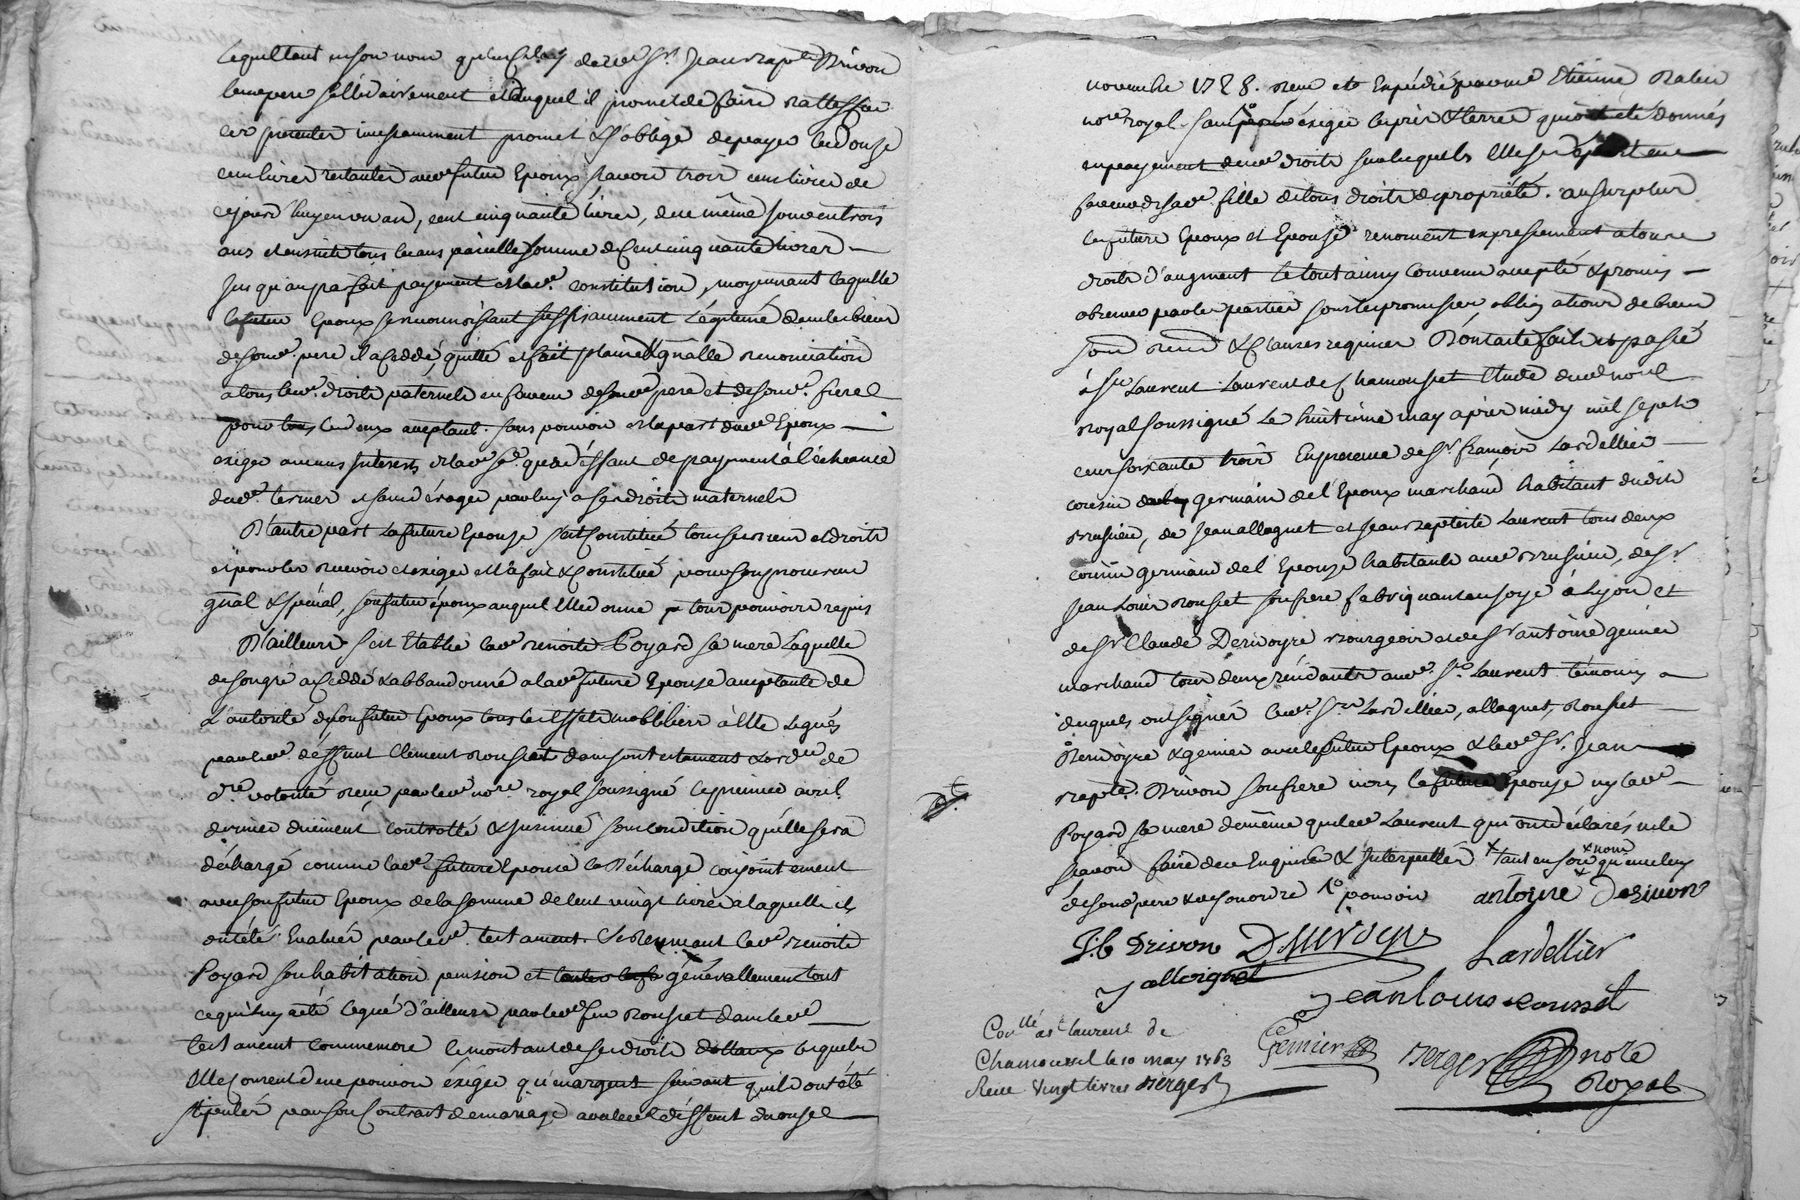 lequel tant en son nom qu'en celuy dudit Sr Jean Bapte Drivon
leur pere sollidairement et duquel il promet de faire rattiffier
ces presentes incessamment promet & s'oblige de payer les douze
cens livres restantes audt futur Epoux savoir trois cens livres de
cejourd'huy en un an, cent cinquante livres, de ce même jour en trois
ans et ensuite tous les ans pareille somme de cent cinquante livres
jusqu'au parfait payement de lade constitution, moyennant laquelle
le futur Epoux se reconnoissant suffisamment légitimé dans les biens
de sondt pere il a ceddé, quitté et fait plaine & gnalle renonciation
a tous lesdt droits paternels en faveur de sondt pere et de sondt frere
pour tous les deux acceptants sans pouvoir de la part dudt Epoux
exiger aucuns interets de lade se qu'au déffaut de payement à l'écheance
desdt termes et sans déroger par luy a ses droits maternels
D'autre part la future Epouse s'est constitué tous ses biens et droits
et pour les recevoir et exiger elle a fait & constitué pour son procureur
gnal & spécial, son futur époux auquel elle donne tout pouvoir requis
D'ailleurs s'est Etablie lade Benoite Poyard sa mere laquelle
de son gré a ceddé & abbandonné a lade future Epouse acceptante de
l'autorité de son futur Epoux tous les effets mobiliers à elle légués
par ledt déffunt Clément Rousset dans son testament & ordce de
dre volonté recu par ledt nore royal soussigné le premier avril
dernier duement controllé & insinué sous condition qu'elle sera
déchargé comme lade future Epouse la décharge conjointement
avec son futur Epoux de la somme de cent vingt livres a laquelle ils
ont été Evalués par ledt testament. se reservant lade Benoite
Poyard son habitation pension et génerallement tout
ce qui luy a été légué d'ailleurs par ledt feu Rousset dans ledt
testament comme encore le montant de ses droits dottaux lesquels
elle pourra exiger qu'en argent suivant qu'ils ont été
stipulés par son contract de mariage avec le déffunt du onze
novembre 1728. recu et Expédié par me Etienne
nore royal. sans exiger les prés & terres qui ont été donnés
en payement de ces droits
faveur de sade fille de tous droits de propriété. au surplus
les future Epoux et Epouse renoncent expressement a tous
droits d'augment le tout ainsy convenu accepté & promis
observer par les parties sous les promisses, obligations de biens
soumd renond & clauses requises Dont acte fait et passé
à St Laurent Laurent de Chamousset Etude dudt nore
royal soussigné le huitieme may après midy mil sept
cent soixante trois En presence de Sr françois Lardellier
cousin germain de l'Epoux marchand habitant dudit
Brussieu, de Jean allognet et Jean Baptiste Laurent tous deux
cousins germains de l'Epouze habitants audt Brussieu, de Sr
Jean Louis Rousset son frere fabriquant en soye à Lyon et
de Sr Claude Demoyre Bourgeois et de Sr antoine genier
marchand tous deux résidants audt St Laurent témoins
lesquels ont signé lesdt Srs Lardillier, allognet, Rousset
Demoyre & genier avec le futur Epoux & ledt Sr Jean
Bapte Drivon son frere non la future Epouse ny lade
Poyard sa mere de même que led Laurent qui ont déclarés ne le
savoir faire de ce Enquis & Interpellés + tant en son + nom qu'en celuy
de son pere & de son ordre
antoine Derivon
J.b Drivon
Lardellier
J allognet
Jean Louis Rousset
Genier
Berger nore
Royal
Conllé a St laurent de
Chamousset le 10 may 1763
Recu vingt livres Berger